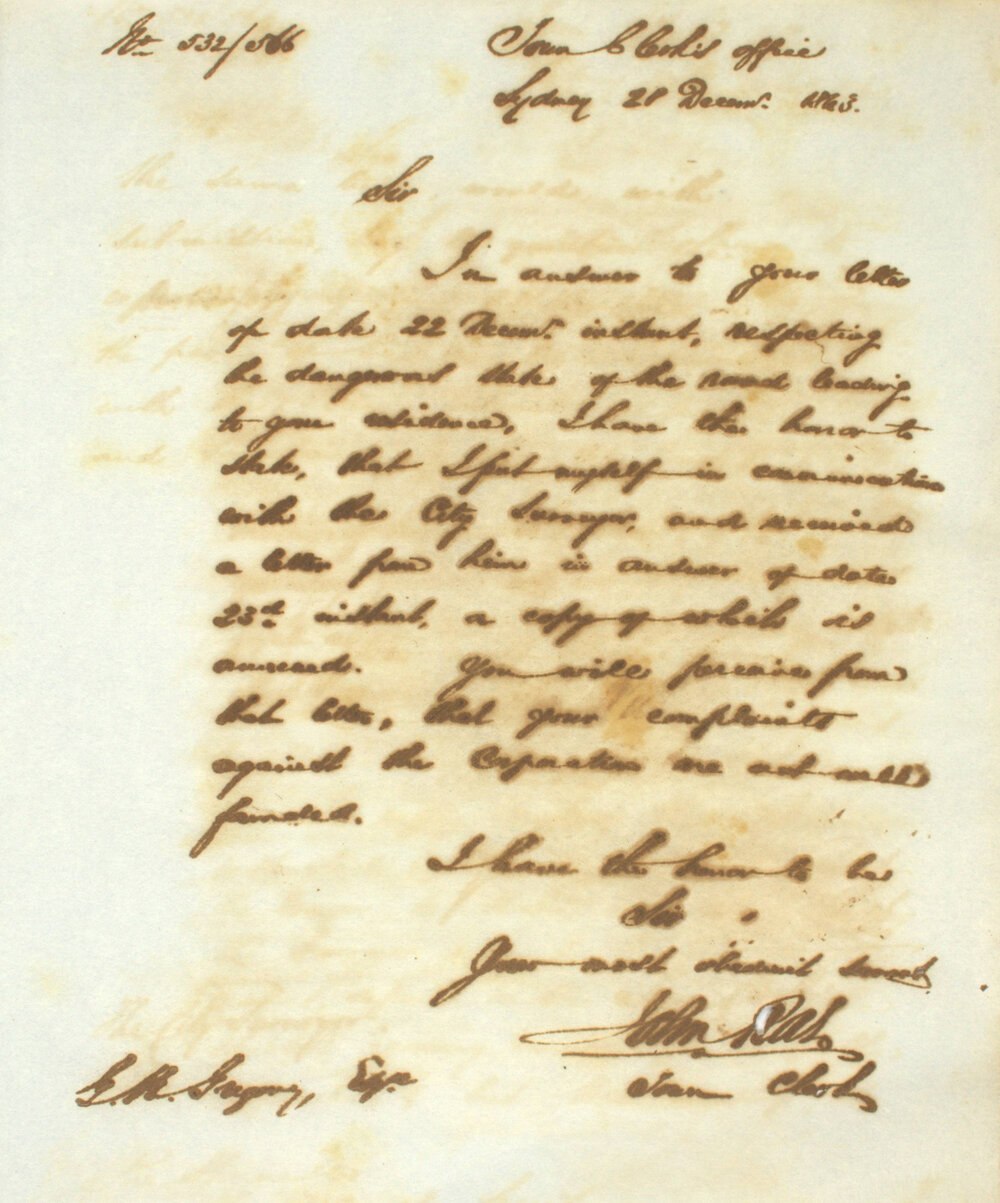 No. 532/566
Town Clerk's office
Sydney 28 Decemr. 1863.
Sir
In answer to your letter
of date 22 Decemr. instant, respecting
the dangerous state of the road leading
to your residence, I have the honor to
state, that I put myself in communication
with the City Surveyor, and received
a letter from him in answer of date
23rd. instant, a copy of which is
annexed. You will perceive from
that letter, that your complaints
against the Corporation are not well
founded.
I have the honor to be
Sir
Your most obedient servant
John Rae
Town Clerk
Gregory, Esqr